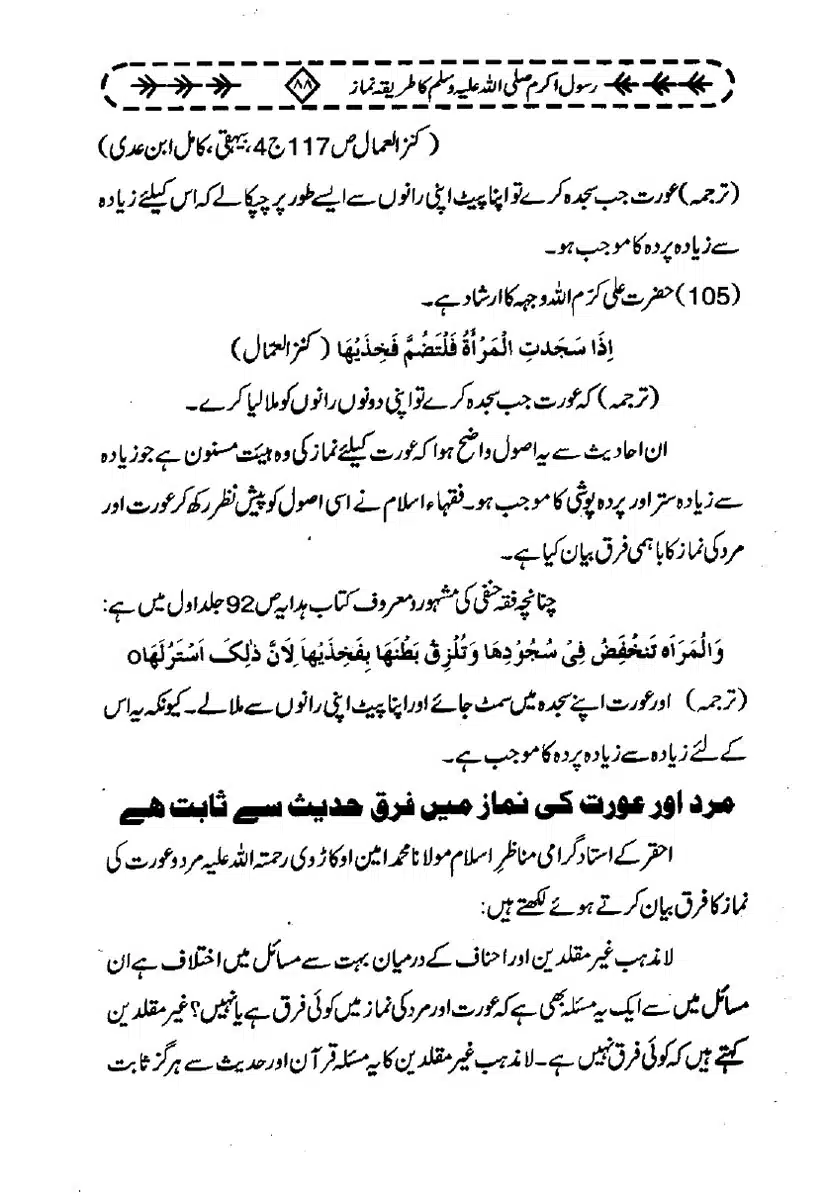 رسول اکرم صلی اللہ علیہ وسلم کا طریقہ نماز ۸۸
(کنز العمال ص 117 ج 4، بیہقی، کامل ابن عدی)
(ترجمہ) عورت جب سجدہ کرے تو اپنا پیٹ اپنی رانوں سے ایسے طور پر چپکا لے کہ اس کیلئے زیادہ
سے زیادہ پردہ کا موجب ہو۔
(105) حضرت علی کرّم اللہ وجہہ کا ارشاد ہے۔
اِذَا سَجَدتِ الْمَرْأَۃُ فَلْتَضُمَّ فَخِذَیْھَا (کنز العمال)
(ترجمہ) کہ عورت جب سجدہ کرے تو اپنی دونوں رانوں کو ملا لیا کرے۔
ان احادیث سے یہ اصول واضح ہوا کہ عورت کیلئے نماز کی وہ ہیئت مسنون ہے جو زیادہ
سے زیادہ ستر اور پردہ پوشی کا موجب ہو۔ فقہاء اسلام نے اسی اصول کو پیش نظر رکھ کر عورت اور
مرد کی نماز کا باہمی فرق بیان کیا ہے۔
چنانچہ فقہ حنفی کی مشہور و معروف کتاب ہدایہ ص 92 جلد اول میں ہے:
وَالْمَرَاَہ تَنخْفَضُ فِیْ سُجُوْدِھَا وَتُلْزِقُ بَطْنَھَا بِفَخِذَیْھاَ لِاَنَّ ذٰلِکَ اَسْتَرُلَھَاo
(ترجمہ) اور عورت اپنے سجدہ میں سمٹ جائے اور اپنا پیٹ اپنی رانوں سے ملا لے۔ کیونکہ یہ اس
کے لئے زیادہ سے زیادہ پردہ کا موجب ہے۔
مرد اور عورت کی نماز میں فرق حدیث سے ثابت ھے
احقر کے استاد گرامی مناظرِ اسلام مولانا محمد امین اوکاڑوی رحمتہ اللہ علیہ مرد و عورت کی
نماز کا فرق بیان کرتے ہوئے لکھتے ہیں:
لا مذہب غیر مقلدین اور احناف کے درمیان بہت سے مسائل میں اختلاف ہے ان
مسائل میں سے ایک یہ مسئلہ بھی ہے کہ عورت اور مرد کی نماز میں کوئی فرق ہے یا نہیں؟ غیر مقلدین
کہتے ہیں کہ کوئی فرق نہیں ہے۔ لا مذہب غیر مقلدین کا یہ مسئلہ قرآن اور حدیث سے ہرگز ثابت